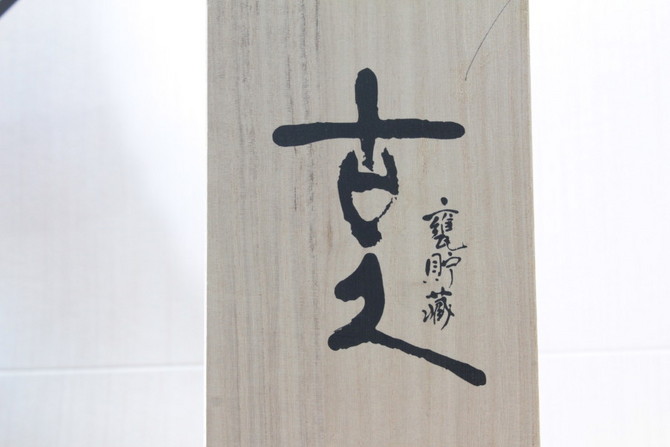 古久
甕貯蔵